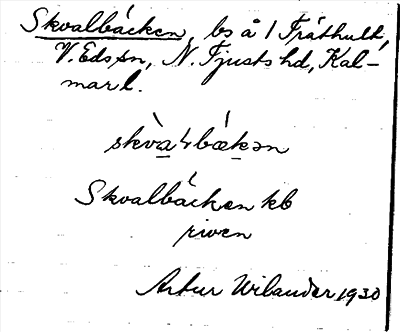 Skvalbäcken, bs å 1 Tråthult,
V. Eds sn, N. Tjusts hd, Kal-
mar l.
skvàlbǽkən
Skvalbäcken kb
riven
Artur Wilander 1930